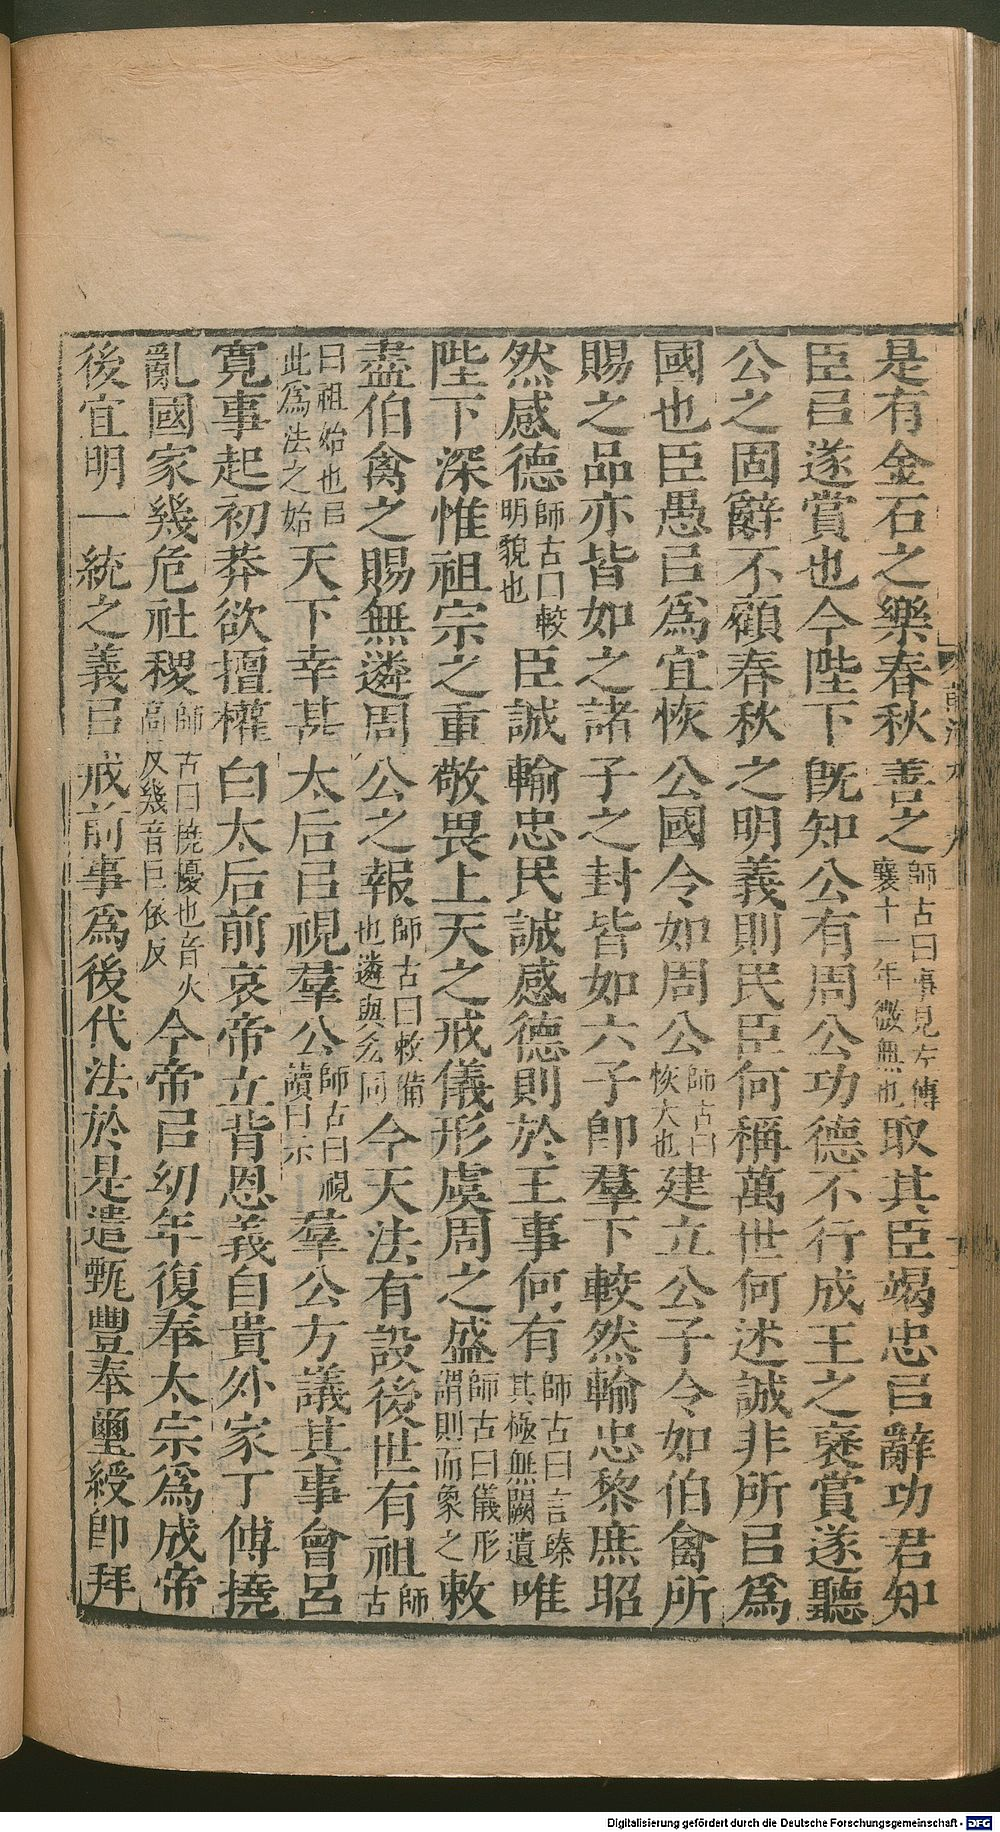 是有金石之樂春秋善之師古曰事見左傳襄十一年微無也取其臣竭忠㠯辭功君知
臣㠯遂賞也今陛下既知公有周公功德不行成王之襃賞遂聽
公之固辭不顧春秋之明義則民臣何稱萬世何述誠非所㠯爲
國也臣愚㠯爲宜恢公國令如周公師古曰恢大也建立公子令如伯禽所
賜之品亦皆如之諸子之封皆如六子卽羣下較然輸忠黎庶昭
然感德師古曰較明貌也臣誠輸忠民誠感德則於王事何有師古曰言臻其極無闕遺唯
陛下深惟祖宗之重敬畏上天之戒儀形虞周之盛師古曰儀形謂則而象之敕
盡伯禽之賜無遴周公之報師古曰敕備也遴與吝同今天法有設後世有祖師古
曰祖始也㠯此爲法之始天下幸甚太后㠯視羣公師古曰視讀曰示羣公方議其事會呂
寬事起初莽欲擅權白太后前哀帝立背恩義自貴外家丁傅撓
亂國家幾危社稷師古曰撓擾也音火高反幾音巨依反今帝㠯幼年復奉太宗爲成帝
後宜明一統之義㠯戒前事爲後代法於是遣甄豐奉璽綬卽拜
Digitalisierung gefördert durch die Deutsche Forschungsgemeinschaft - DFG